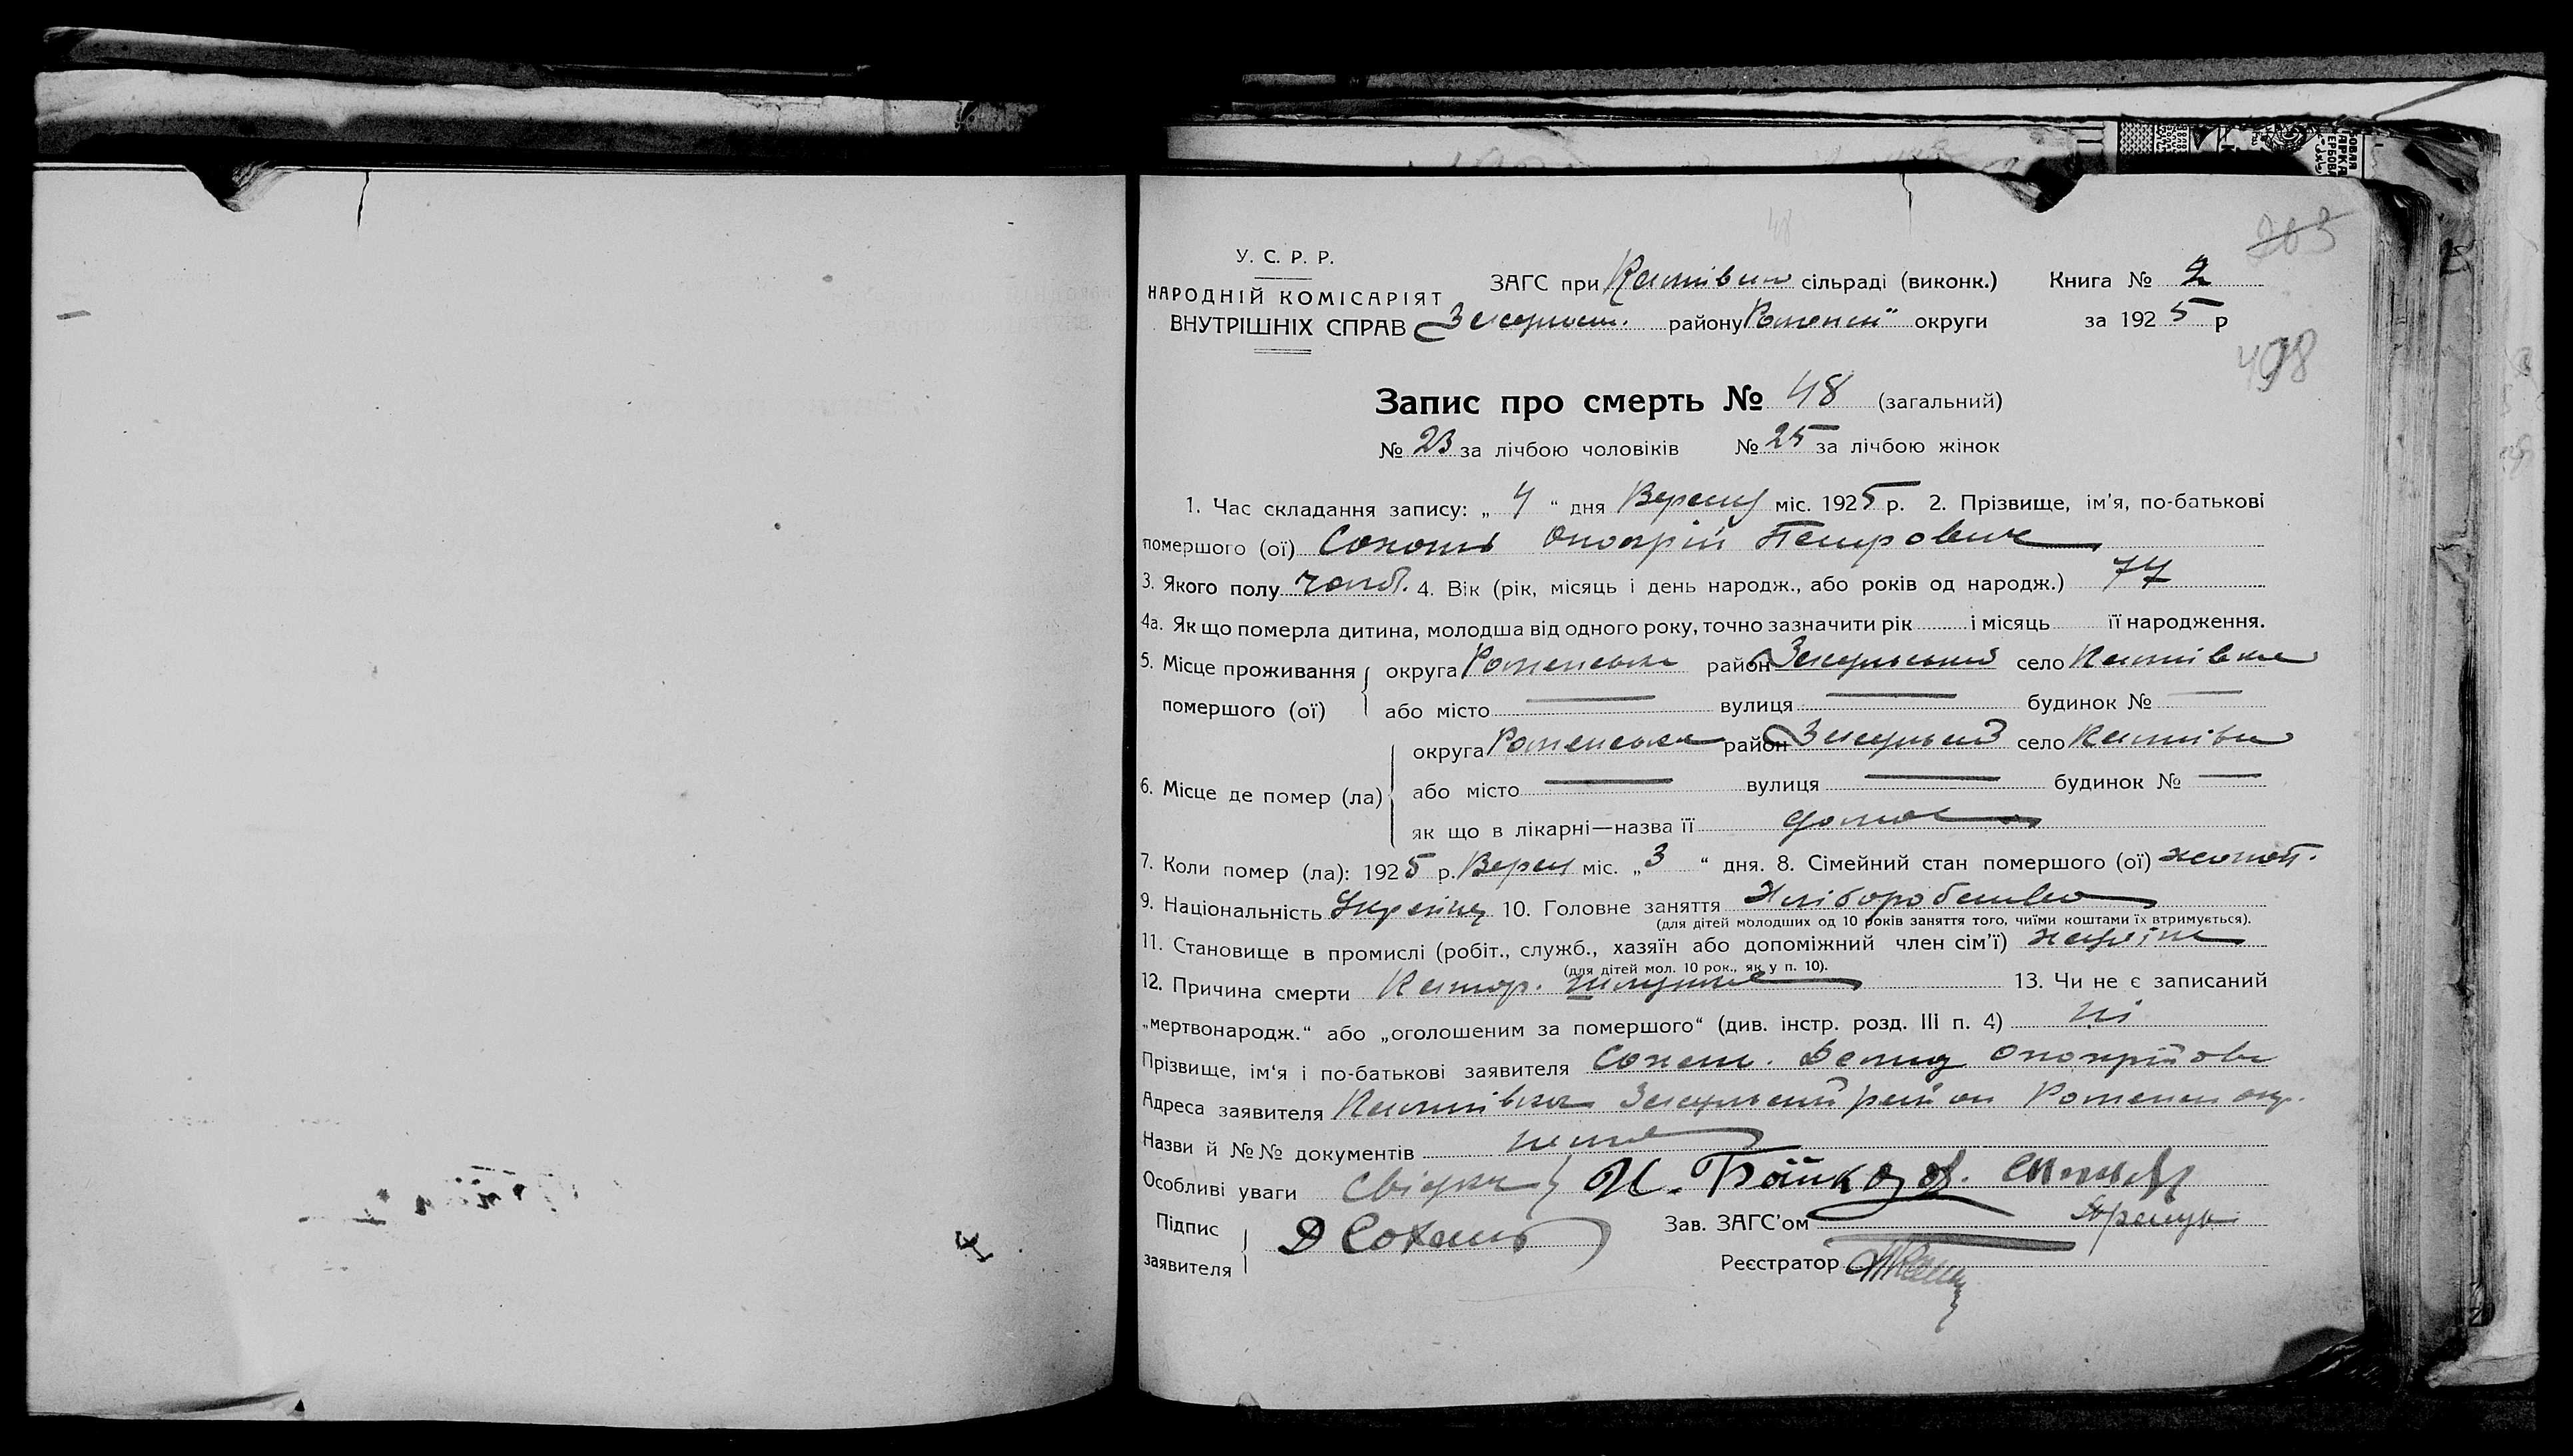 203
У. С. Р. Р.
НАРОДНІЙ КОМІСАРІЯТ
ВНУТРІШНІХ СПРАВ
48
ЗАГС при сільраді (виконк.) Книга № 2
району Роменськ округи за 1925 р
498
Запис про смерть № 48 (загальний)
№ 23 за лічбою чоловіків № 25 за лічбою жінок
1. Час складання запису: „ 4 “ дня Вересня міс. 1925 р. 2. Прізвище, ім'я, по-батькові
помершого (ої) Сохань Онопрій Петрович
3. Якого полу чолов. 4. Вік (рік, місяць і день народж., або років од народж.) 77
4а. Як що померла дитина, молодша від одного року, точно зазначити рік і місяць її народження.
5. Місце проживання округа Роменська район село
помершого (ої) або місто — вулиця — будинок № —
округа Роменська район село
6. Місце де помер (ла) або місто — вулиця — будинок № —
як що в лікарні—назва її дома
7. Коли помер (ла): 1925 р. Верес міс. „ 3 “ дня. 8. Сімейний стан помершого (ої) жонат.
9. Національність Українц 10. Головне заняття Хліборобство
(для дітей молодших од 10 років заняття того, чиїми коштами їх втримується).
11. Становище в промислі (робіт., служб., хазяїн або допоміжний член сім'ї) хазяїн
(для дітей мол. 10 рок., як у п. 10).
12. Причина смерти Катар. шлунка 13. Чи не є записаний
„мертвонародж.“ або „оголошеним за помершого“ (див. інстр. розд. III п. 4) ні
Прізвище, ім'я і по-батькові заявителя Сохань. Онопрійов
Адреса заявителя район Роменськ окр.
Назви й №№ документів нема
Особливі уваги Свідки Бойко
Підпис
заявителя Д Сохань
Зав. ЗАГС'ом
Реєстратор